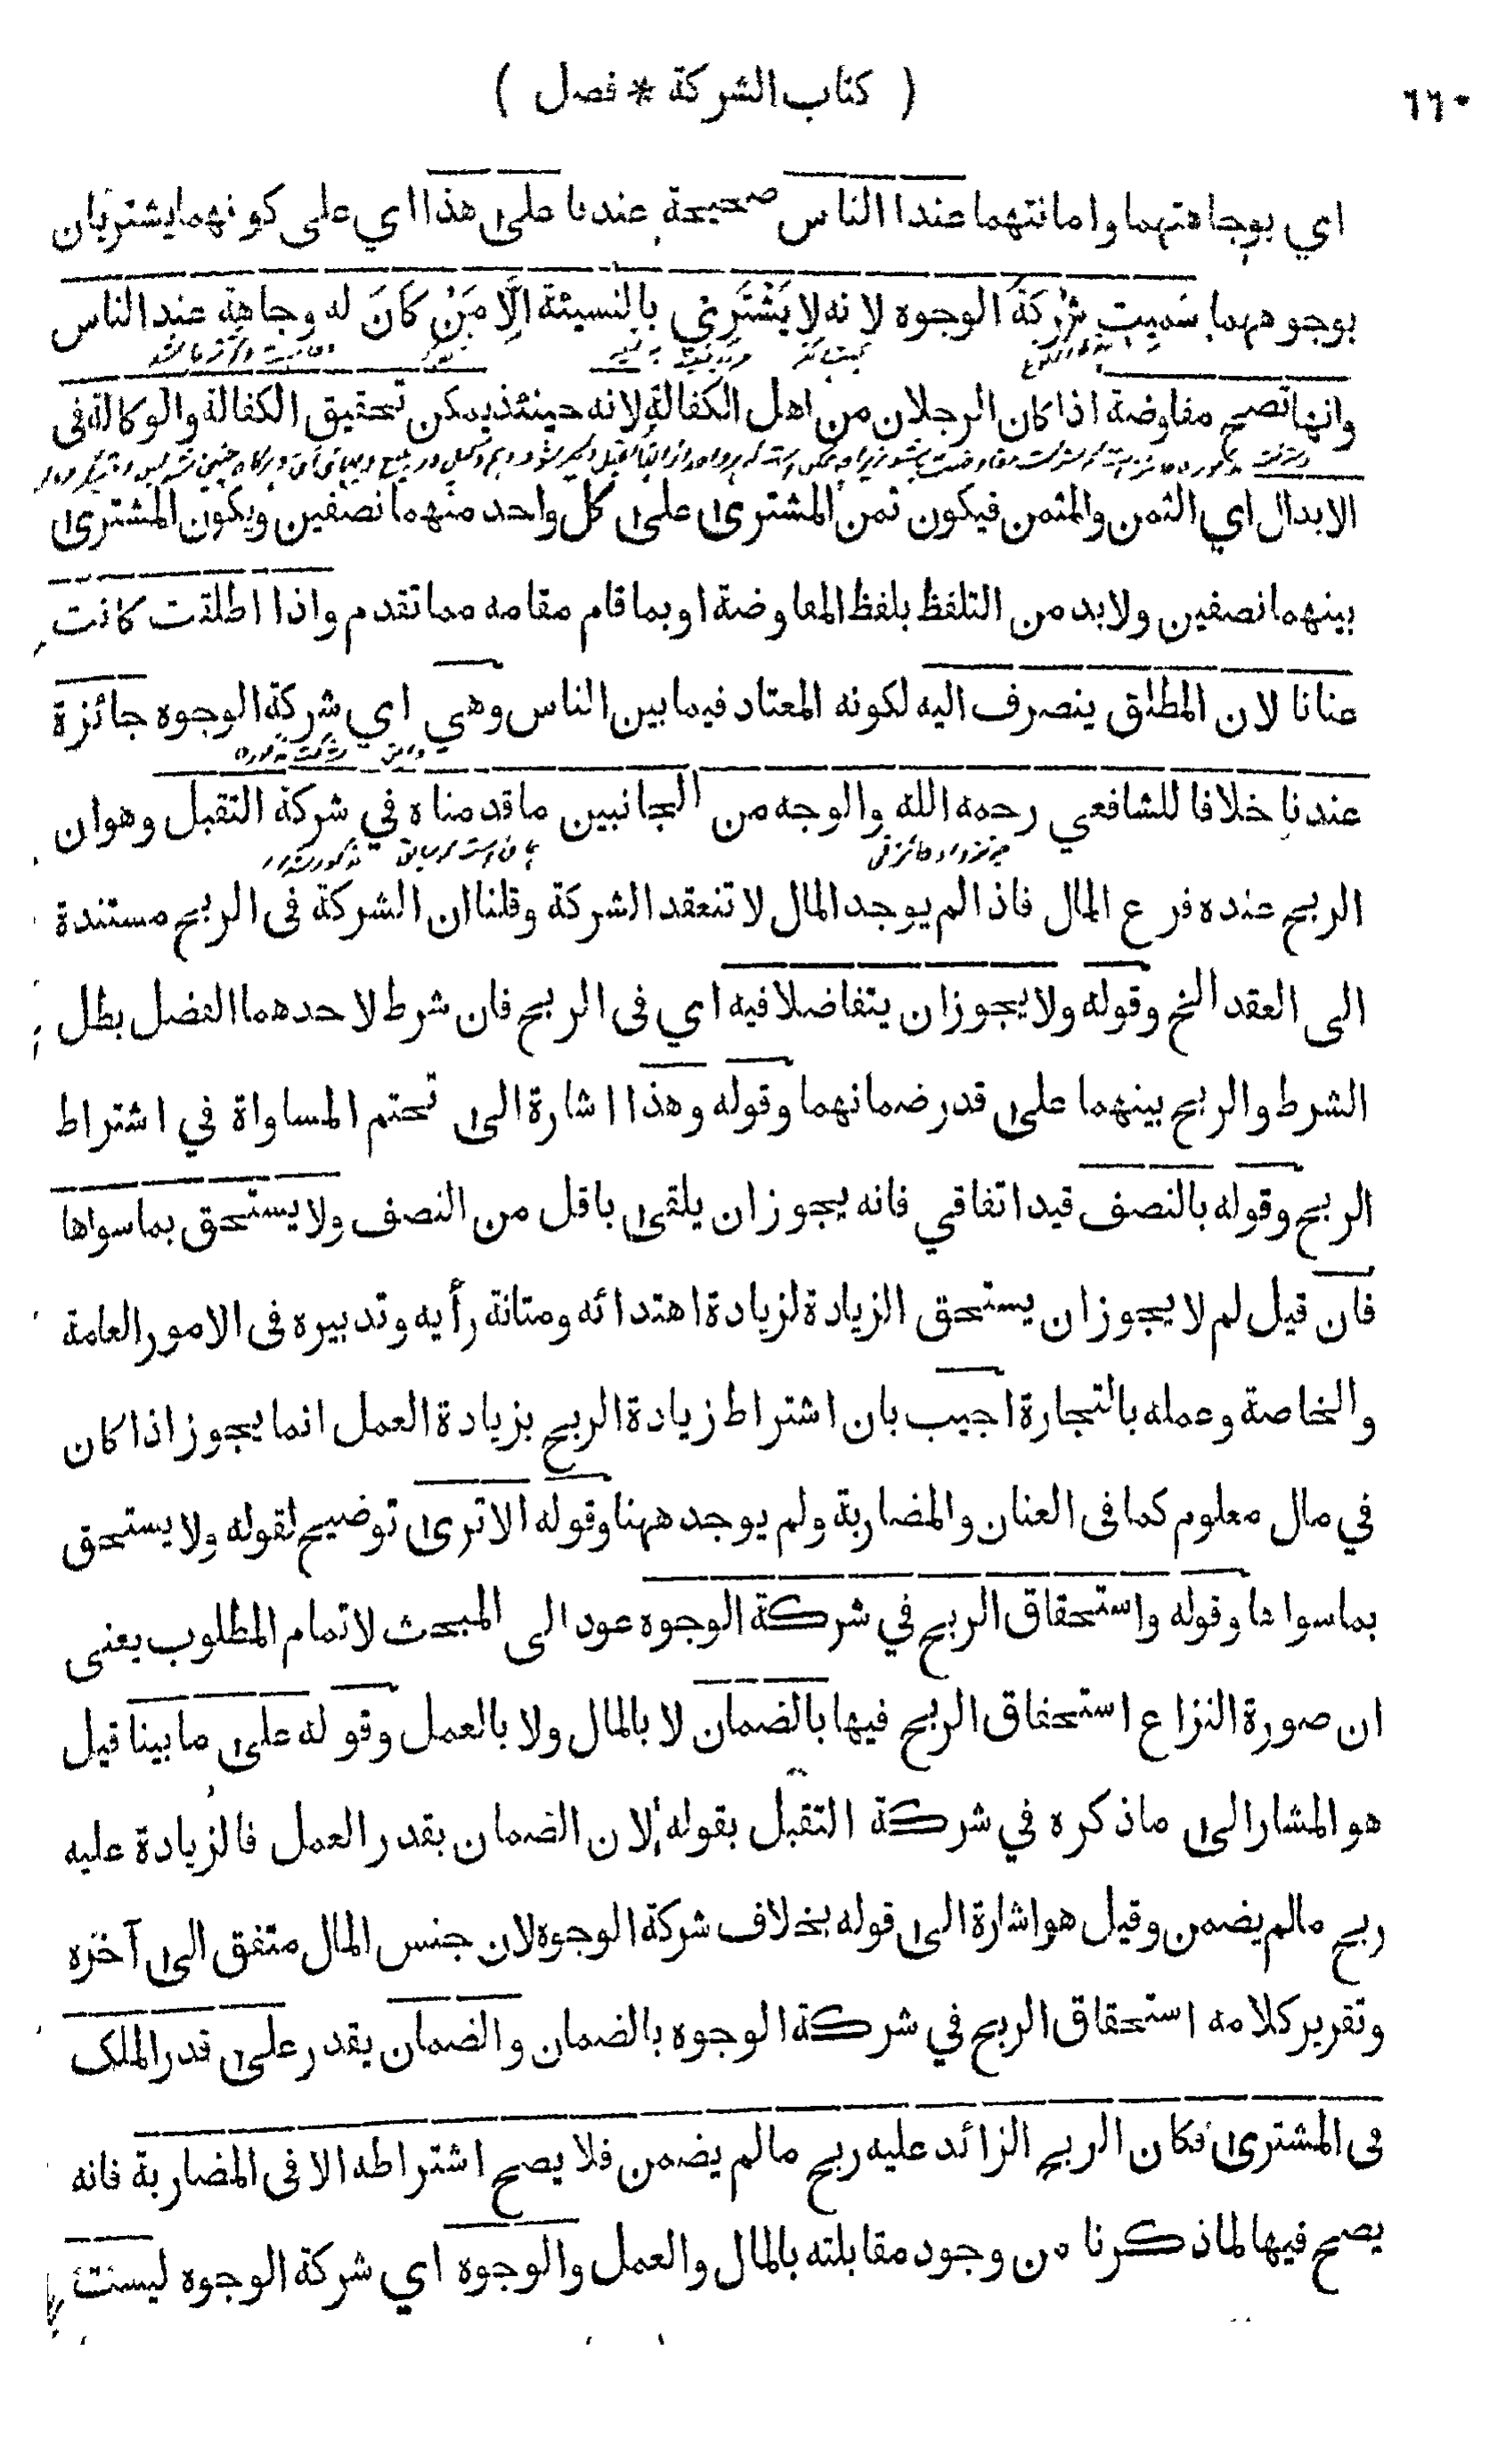 ٦٦٠
( كتاب الشركة * فصل )
اي بوجاهتهما وامانتهما عندا الناس صحيحة عندنا على هذا اي على كونهما يشتريان
بوجوههما سميت شركة الوجوه لانه لا يَشْتَرِي بالنسيئة اِلَّا مَنْ كَانَ له وجاهة عند الناس
وانها تصح مفاوضة اذا كان الرجلان من اهل الكفالة لانه حينئذ يمكن تحقيق الكفالة والوكالة فى
الابدال اي الثمن والمثمن فيكون ثمن المشترى على كل واحد منهما نصفين ويكون المشترى
بينهما نصفين ولابد من التلفظ بلفظ المفاوضة او بما قام مقامه مما تقدم واذا اطلقت كانت
عنانا لان المطلق ينصرف اليه لكونه المعتاد فيما بين الناس وهي اي شركة الوجوه جائزة
عندنا خلافا للشافعي رحمه الله والوجه من الجانبين ما قدمناه في شركة التقبل وهو ان
الربح عنده فرع المال فاذا لم يوجد المال لا تنعقد الشركة وقلنا ان الشركة فى الربح مستندة
الى العقد الخ وقوله ولا يجوز ان يتفاضلا فيه اي فى الربح فان شرط لاحدهما الفضل بطل
الشرط والربح بينهما على قدر ضمانهما وقوله وهذا اشارة الى تحتم المساواة في اشتراط
الربح وقوله بالنصف قيد اتفاقي فانه يجوز ان يلقى باقل من النصف ولا يستحق بما سواها
فان قيل لم لا يجوز ان يستحق الزيادة لزيادة اهتدائه ومتانة رأيه وتدبيره فى الامور العامة
والخاصة وعمله بالتجارة اجيب بان اشتراط زيادة الربح بزيادة العمل انما يجوز اذا كان
في مال معلوم كما فى العنان والمضاربة ولم يوجد ههنا وقوله الا ترى توضيح لقوله ولا يستحق
بما سواها وقوله واستحقاق الربح في شركة الوجوه عود الى المبحث لاتمام المطلوب يعنى
ان صورة النزاع استحقاق الربح فيها بالضمان لا بالمال ولا بالعمل وقوله على ما بينا قيل
هو المشار الى ما ذكره في شركة التقبل بقوله لان الضمان بقدر العمل فالزيادة عليه
ربح مالم يضمن وقيل هو اشارة الى قوله بخلاف شركة الوجوه لان جنس المال متفق الى آخره
وتقرير كلامه استحقاق الربح في شركة الوجوه بالضمان والضمان يقدر على قدر الملك
فى المشترى فكان الربح الزائد عليه ربح مالم يضمن فلا يصح اشتراطه الا فى المضاربة فانه
يصح فيها لما ذكرنا من وجود مقابلته بالمال والعمل والوجوه اي شركة الوجوه ليست